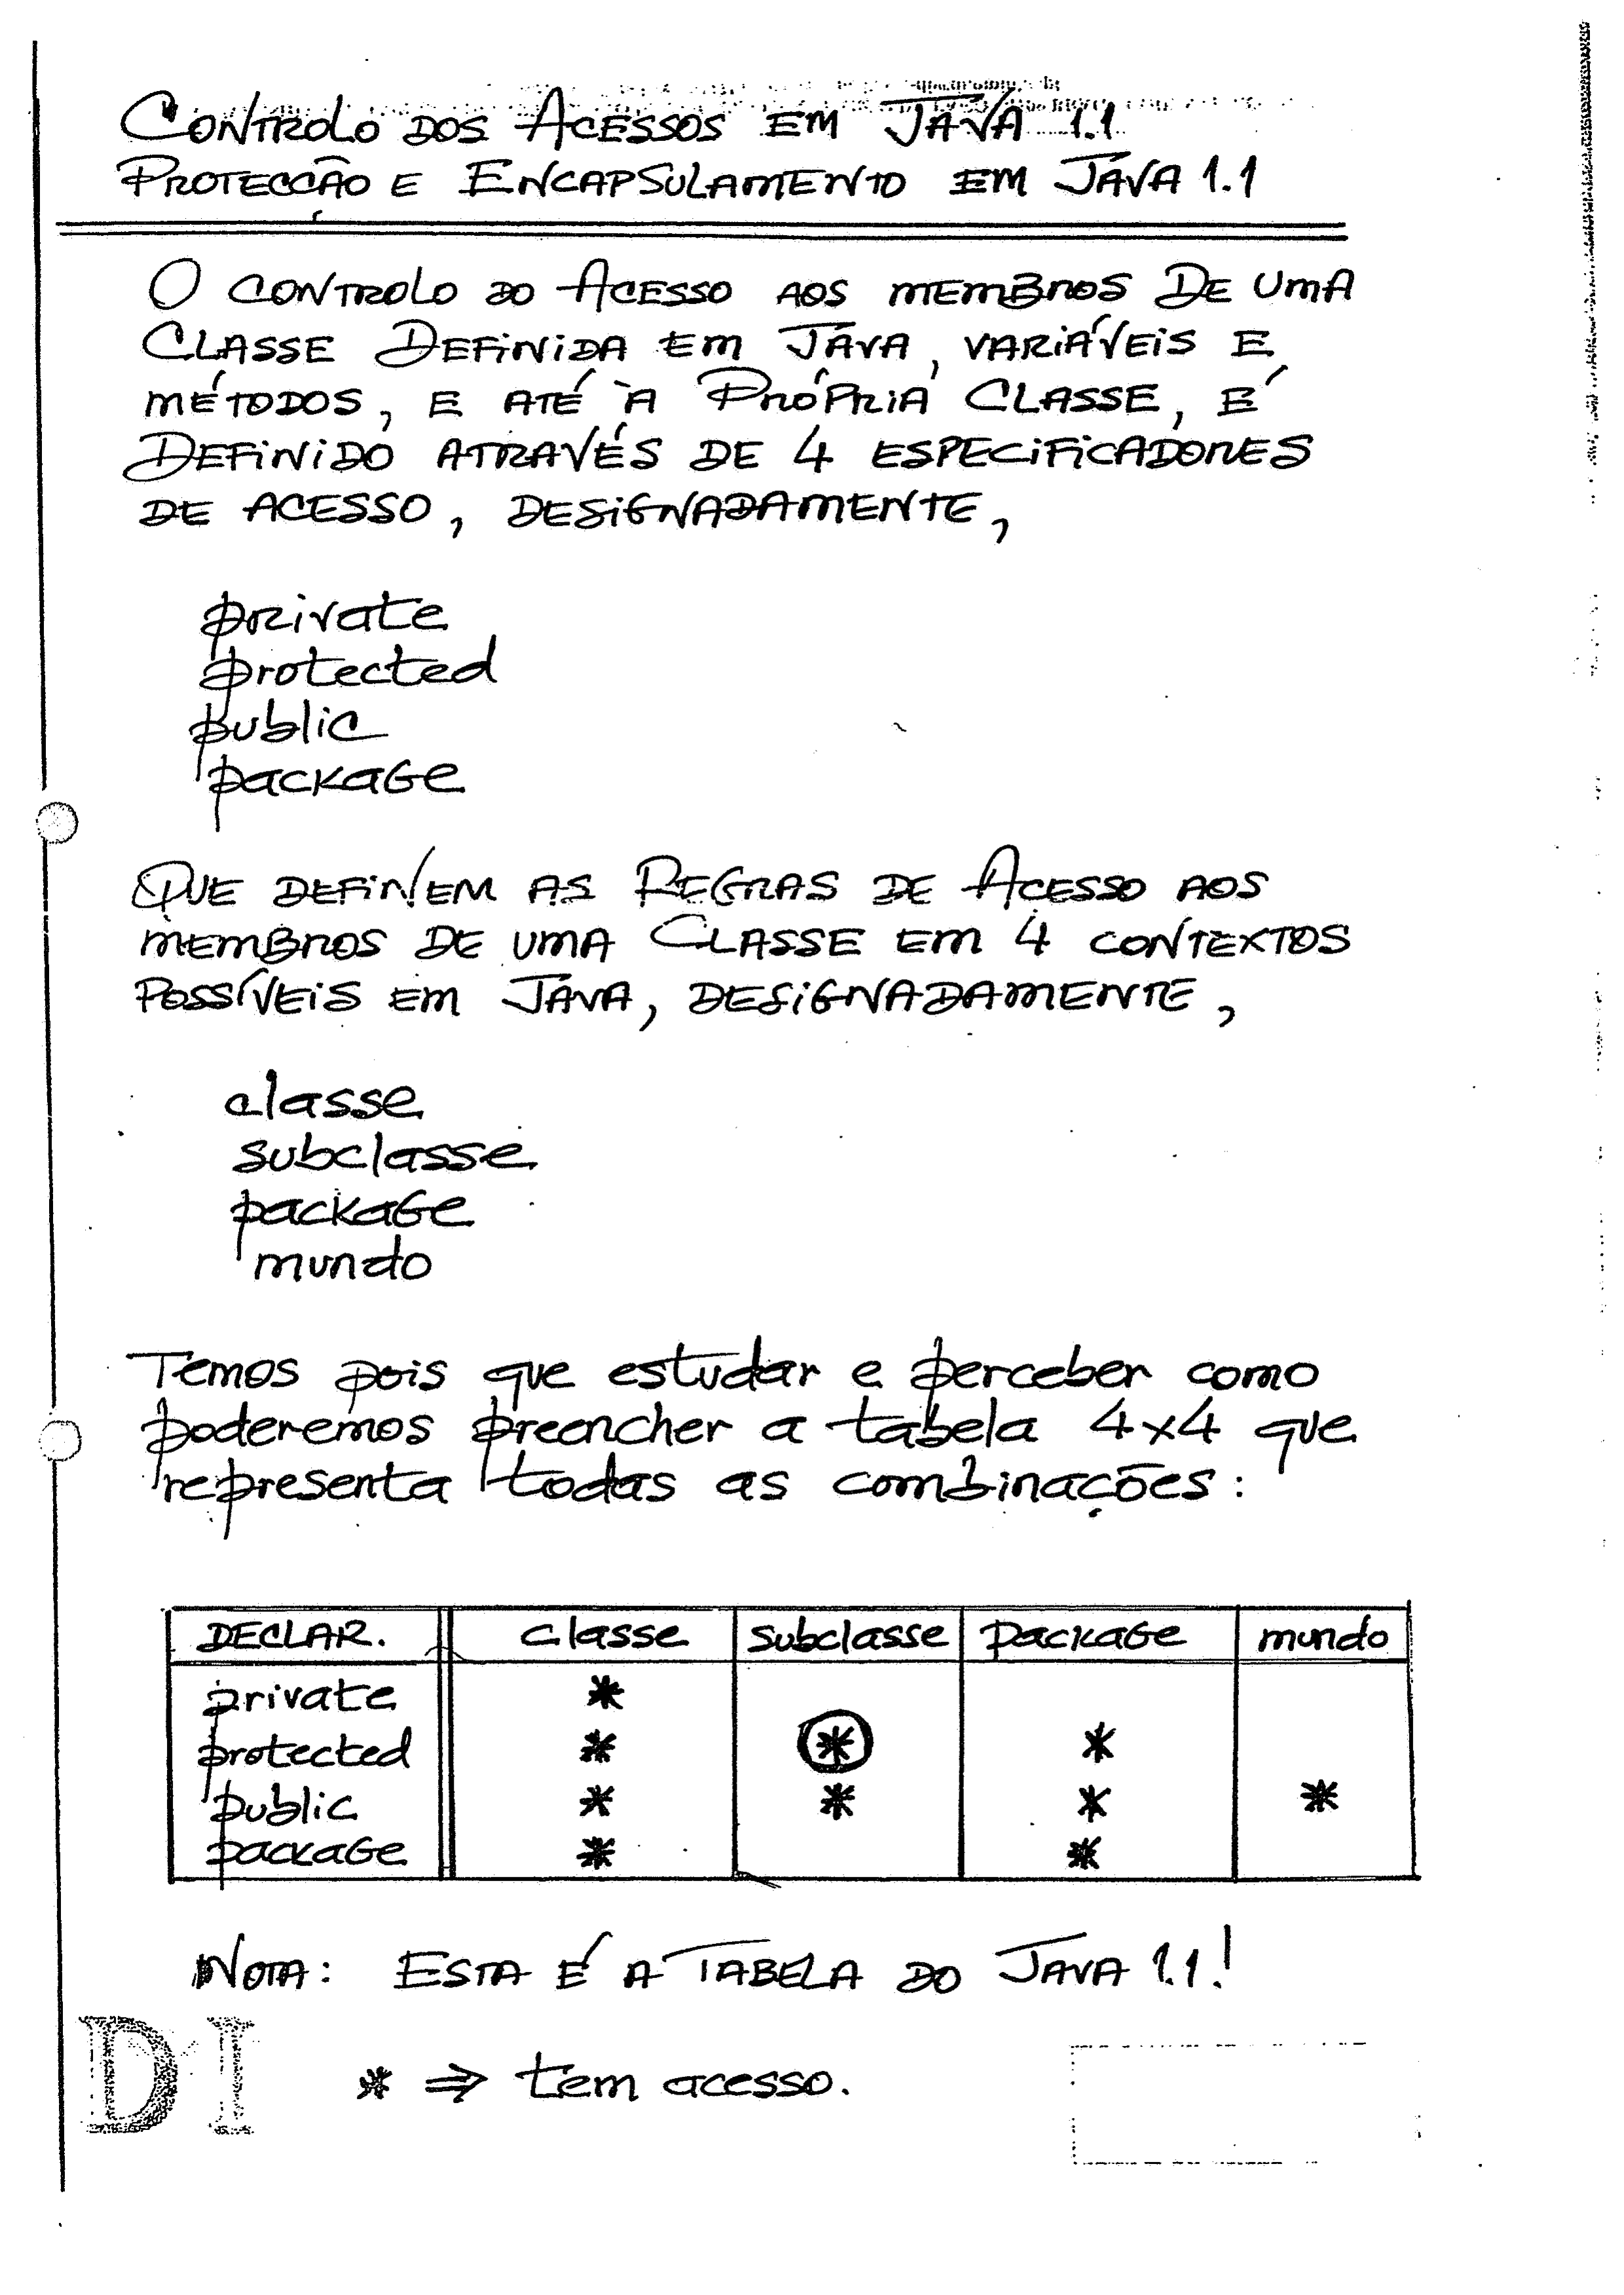 CONTROLO DOS ACESSOS EM JAVA 1.1
PROTECÇÃO E ENCAPSULAMENTO EM JAVA 1.1
O CONTROLO DO ACESSO AOS MEMBROS DE UMA
CLASSE DEFINIDA EM JAVA, VARIÁVEIS E
MÉTODOS, E ATÉ À PRÓPRIA CLASSE, É
DEFINIDO ATRAVÉS DE 4 ESPECIFICADORES
DE ACESSO, DESIGNADAMENTE,
private
protected
public
package
QUE DEFINEM AS REGRAS DE ACESSO AOS
MEMBROS DE UMA CLASSE EM 4 CONTEXTOS
POSSÍVEIS EM JAVA, DESIGNADAMENTE,
classe
subclasse
package
mundo
Temos pois que estudar e perceber como
poderemos preencher a tabela 4x4 que
representa todas as combinações:
DECLAR. classe subclasse package mundo
private *
protected * * *
public * * * *
package * *
NOTA: ESTA É A TABELA DO JAVA 1.1!
* ⇒ tem acesso.
DI